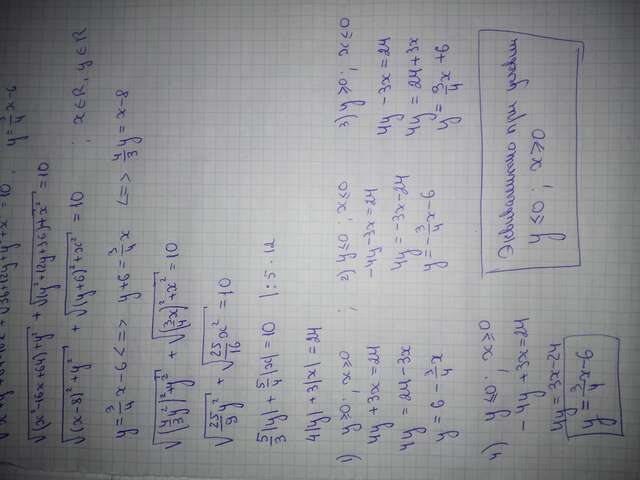 √x²+y²+64-16x + √36+12y+y²+x² = 10 ; y=3/4x-6
√(x²-16x+64)+y² + √(y²+12y+36)+x² = 10
√(x-8)²+y² + √(y+6)²+x² = 10 ; x∈R, y∈R
y=3/4x-6 <=> y+6=3/4x <=> 4/3y=x-8
√(4/3y)²+y² + √(3/4x)²+x² = 10
√25/9y² + √25/16x² = 10
5/3|y| + 5/4|x| = 10 |:5·12
4|y|+3|x| = 24
1) y≥0; x≥0 ; 2) y≤0; x≤0 3) y≥0; x≤0
4y+3x=24 -4y-3x=24 4y-3x=24
4y=24-3x 4y=-3x-24 4y=24+3x
y=6-3/4x y=-3/4x-6 y=3/4x+6
4) y≤0; x≥0
-4y+3x=24
4y=3x-24
y=3/4x-6
Эквивалентно при условии
y≤0; x≥0